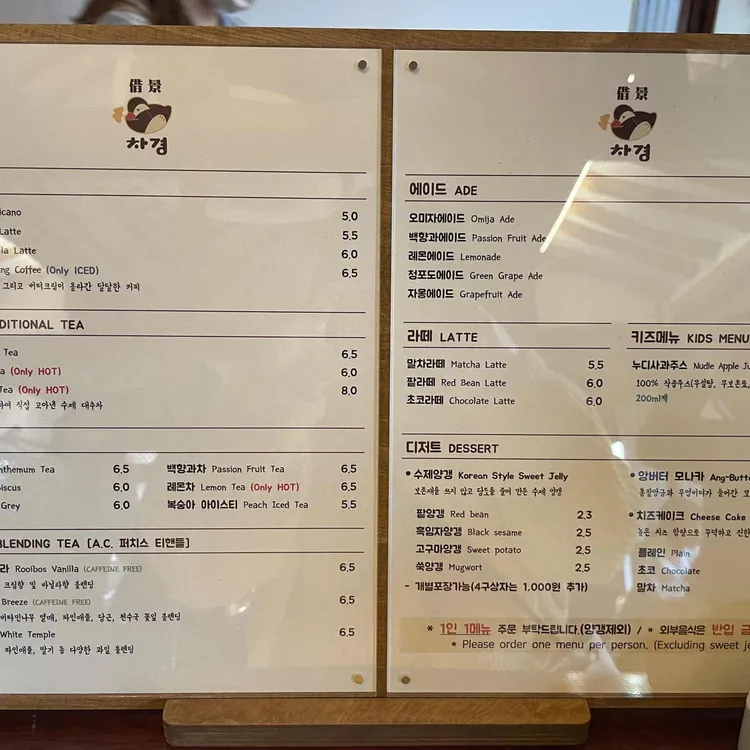 借景
차경
icano 5,0
Latte 5,5
la Latte 6,0
ng Coffee (Only ICED) 6,5
그리고 버터크림이 올라간 달달한 커피
DITIONAL TEA
Tea 6,5
a (Only HOT) 6,0
Tea (Only HOT) 8,0
하여 직접 고아낸 수제 대추차
nthemum Tea 6,5
iscus 6,0
Grey 6,0
백향과차 Passion Fruit Tea 6,5
레몬차 Lemon Tea (Only HOT) 6,5
복숭아 아이스티 Peach Iced Tea 5,5
BLENDING TEA [A.C. 퍼치스 티핸들]
라 Rooibos Vanilla (CAFFEINE FREE) 6,5
크림향 및 바닐라향 블렌딩
Breeze (CAFFEINE FREE) 6,5
비타민나무 열매, 파인애플, 당근, 천수국 꽃잎 블렌딩
White Temple 6,5
파인애플, 딸기 등 다양한 과일 블렌딩
借景
차경
에이드 ADE
오미자에이드 Omija Ade
백향과에이드 Passion Fruit Ade
레몬에이드 Lemonade
청포도에이드 Green Grape Ade
자몽에이드 Grapefruit Ade
라떼 LATTE
말차라떼 Matcha Latte 5,5
팥라떼 Red Bean Latte 6,0
초코라떼 Chocolate Latte 6,0
키즈메뉴 KIDS MENU
누디사과주스 Nudie Apple Ju
100% 착즙주스(무설탕, 무보존료,
200ml팩
디저트 DESSERT
수제양갱 Korean Style Sweet Jelly
보존재를 쓰지 않고 당도를 줄여 만든 수제 양갱
팥양갱 Red bean 2,3
흑임자양갱 Black sesame 2,5
고구마양갱 Sweet potato 2,5
쑥양갱 Mugwort 2,5
- 개별포장가능(4구상자는 1,000원 추가)
앙버터 모나카 Ang-Butt
통팥앙금과 무염버터가 들어간 모
치즈케이크 Cheese Cake
높은 치즈 함량으로 꾸덕하고 진한
플레인 Plain
초코 Chocolate
말차 Matcha
* 1인 1메뉴 주문 부탁드립니다.(양갱제외) / * 외부음식은 반입 금
* Please order one menu per person. (Excluding sweet je